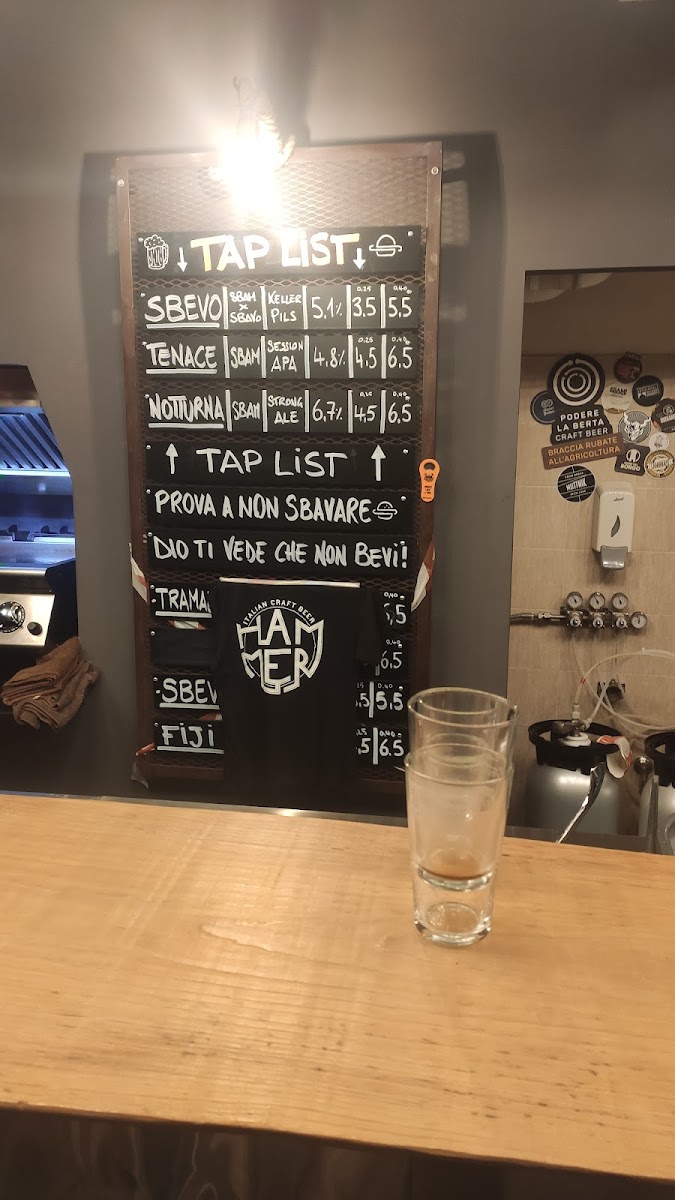 ↓ TAP LIST ↓
SBEVO SBAM X SBAVO KELLER PILS 5,1% 0,25 3.5 0,40 5.5
TENACE SBAM SESSION APA 4,8% 0,25 4,5 0,40 6,5
NOTTURNA SBAM STRONG ALE 6,7% 0,25 4,5 0,40 6,5
↑ TAP LIST ↑
PROVA A NON SBAVARE
DIO TI VEDE CHE NON BEVI!
ITALIAN CRAFT BEER
HAMMER
SBEV 5.5
FIJI 6.5
PODERE
LA BERTA
CRAFT BEER
BRACCIA RUBATE
ALL'AGRICOLTURA
BORGO